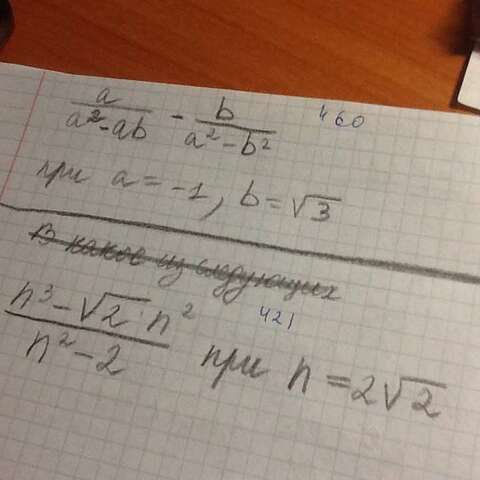 a/(a²-ab) - b/(a²-b²) 460
при a = -1, b = √3
В какое из следующих
(n³-√2·n²)/(n²-2) при n = 2√2 421